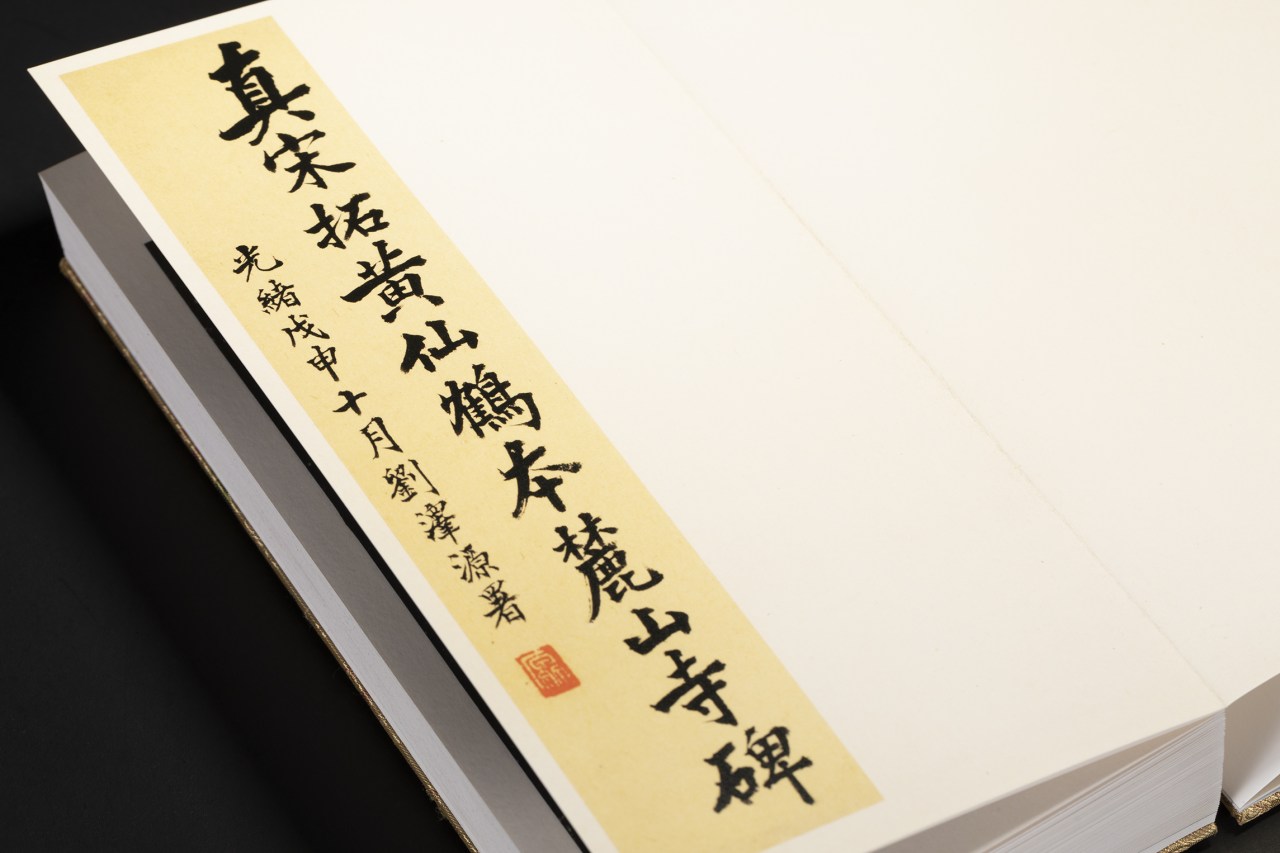 真宋拓黄仙鶴本麓山寺碑
光緒戊申十月劉澤源署